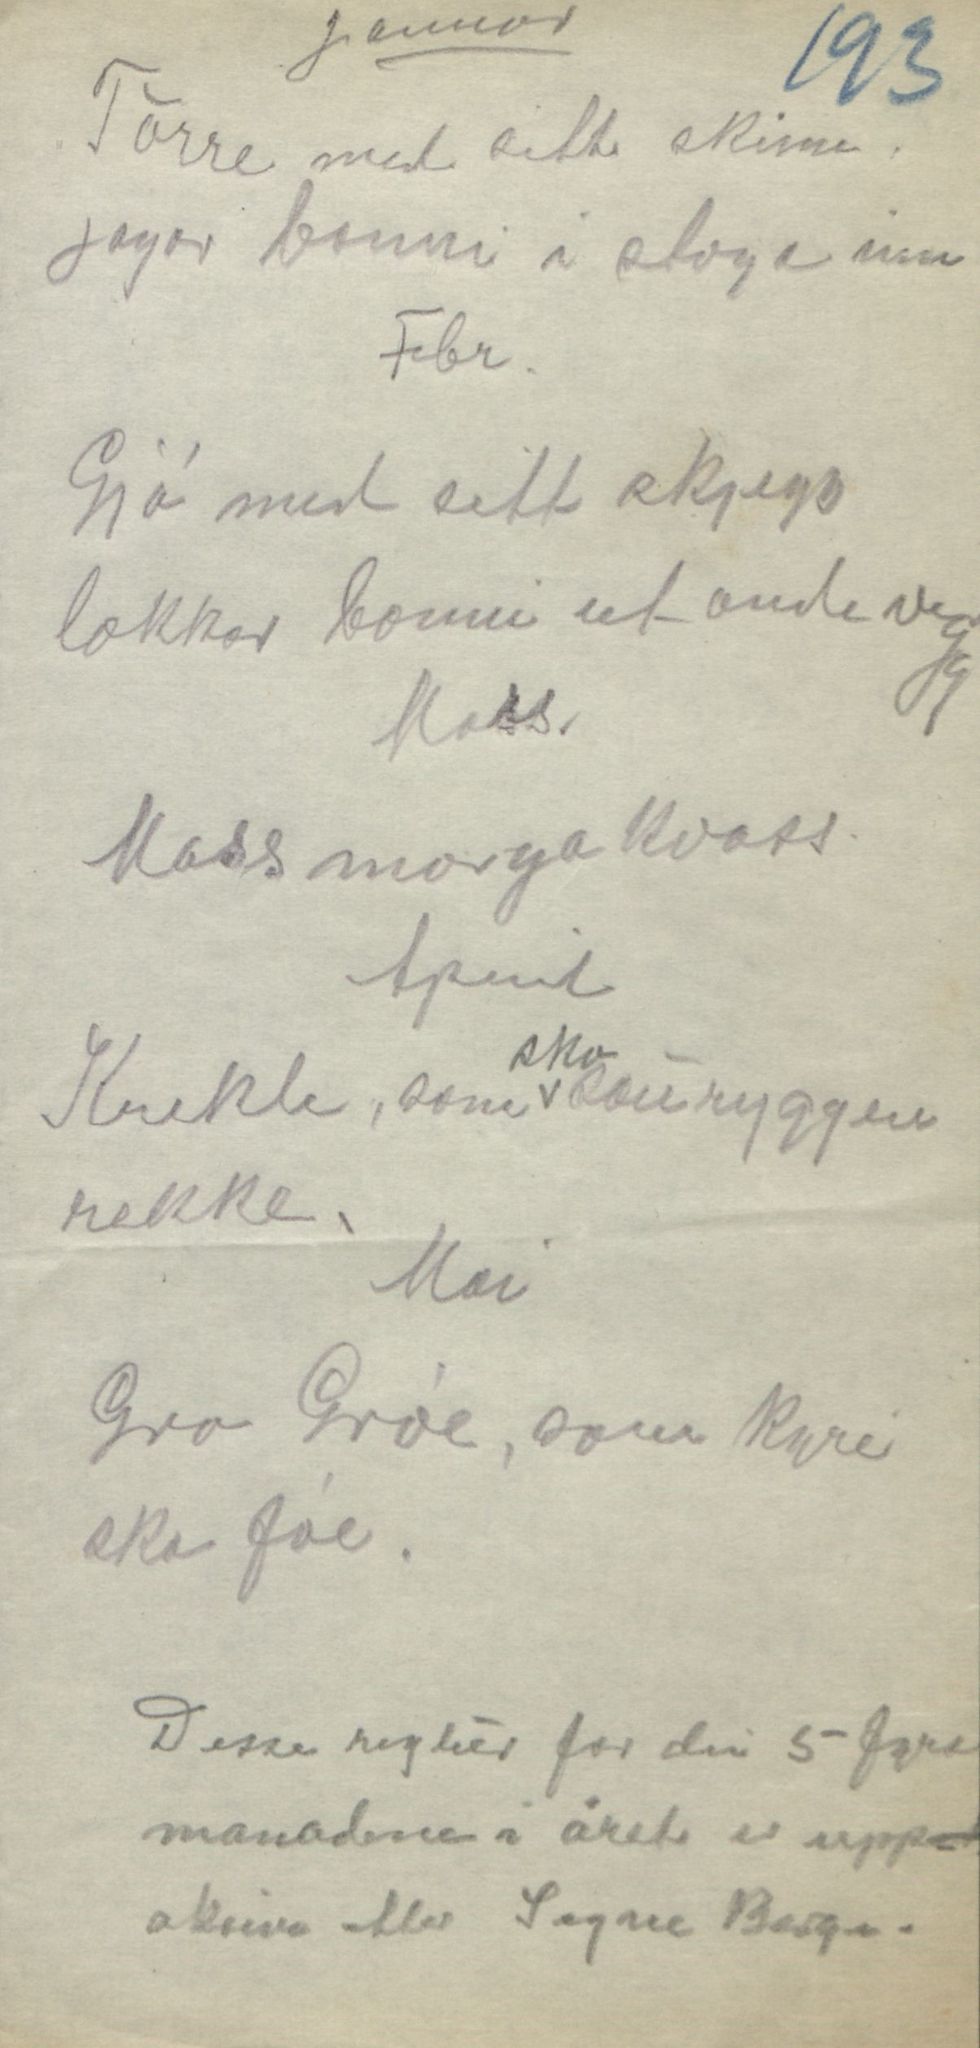 januar
193
Törre med sitt skinn.
jagar bonni i stoga inn
Febr.
Gjó med sitt skjegg
lokkar bonni ut onde vegg
Mass.
Mass morga kvass.
April
Krekle, som sko sauryggen
rekke.
Mai
Gro Gróe, som kyrei
ska fóe.
Desse reglur for dei 5 fyrs
manadene i året er upp
skrive etter Signe Berge.